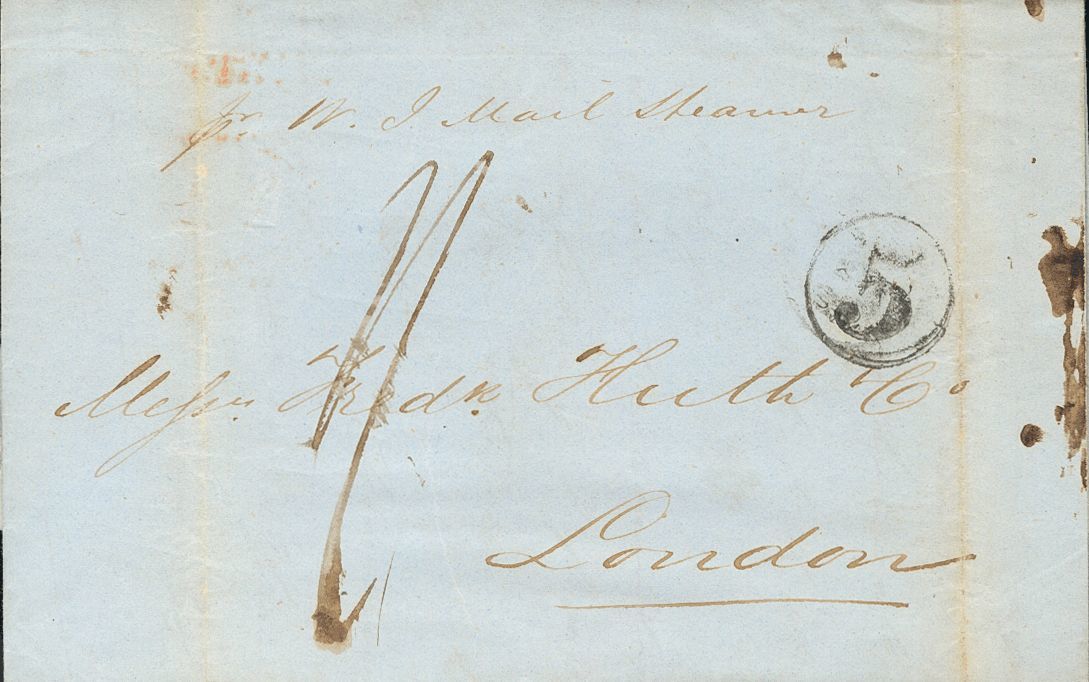 pr. W. I Mail Steamer
5
Messrs. Fredk Huth & Co
London